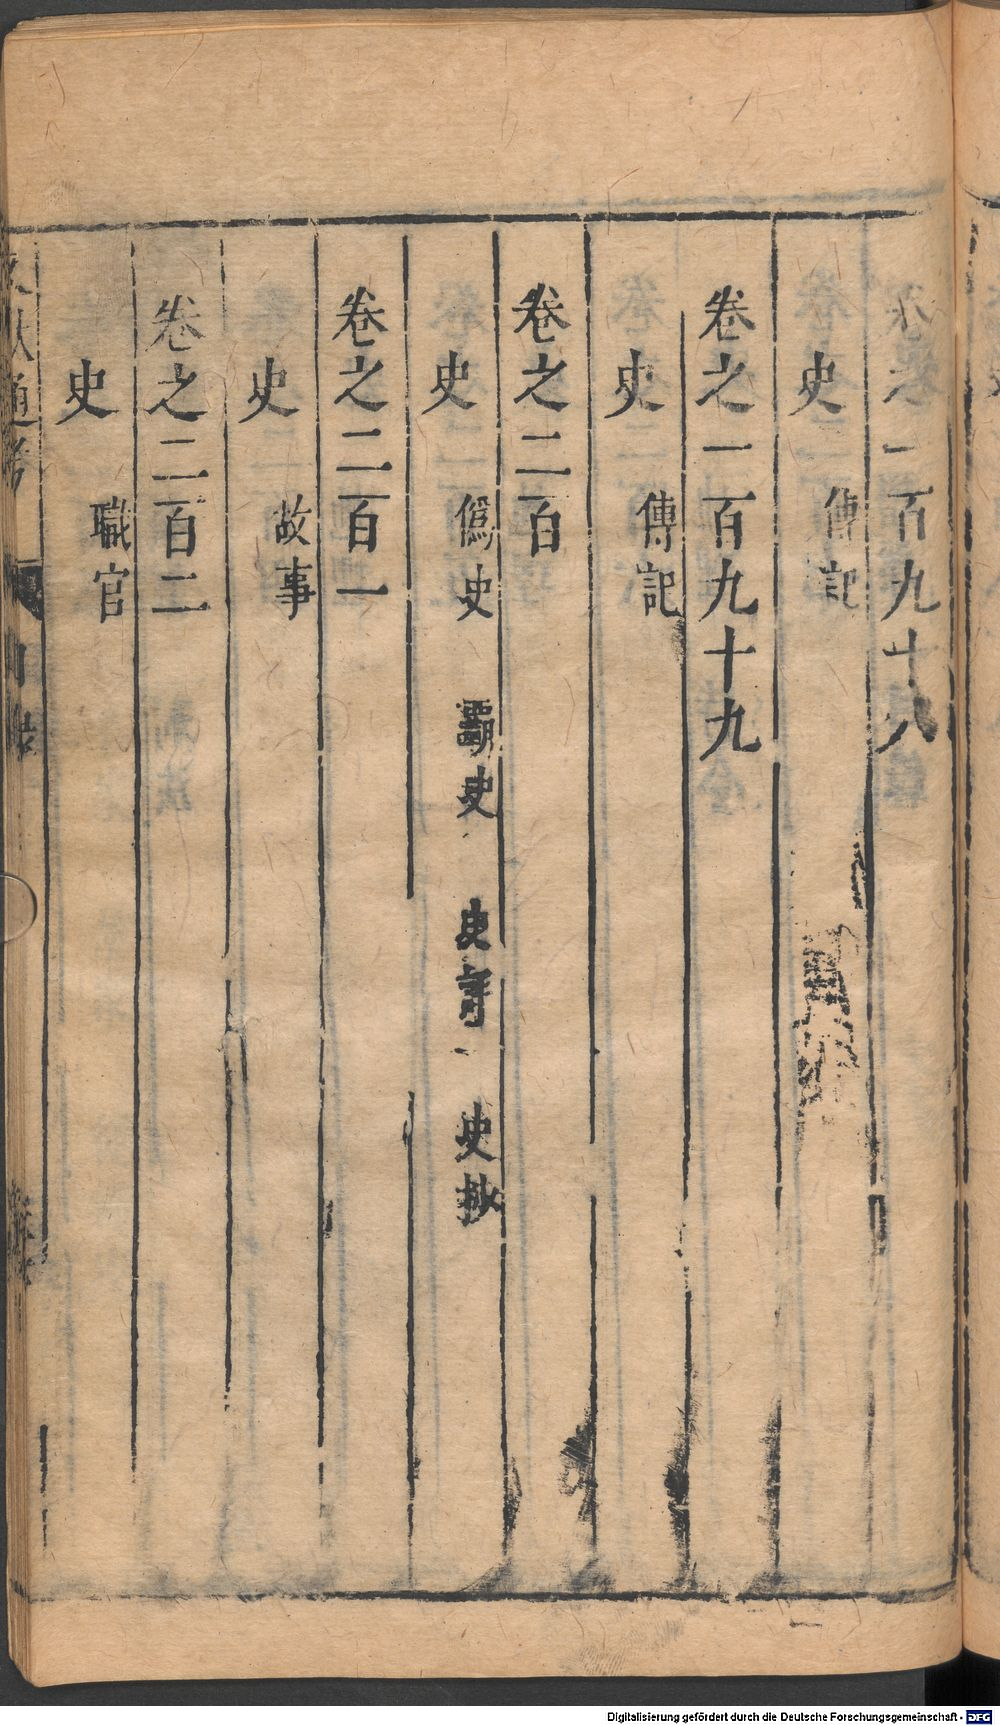 卷之一百九十八
史 傳記
卷之一百九十九
史 傳記
卷之二百
史 僞史 霸史 史評 史抄
卷之二百一
史 故事
卷之二百二
史 職官
文献通考 目录
Digitalisierung gefördert durch die Deutsche Forschungsgemeinschaft - DFG